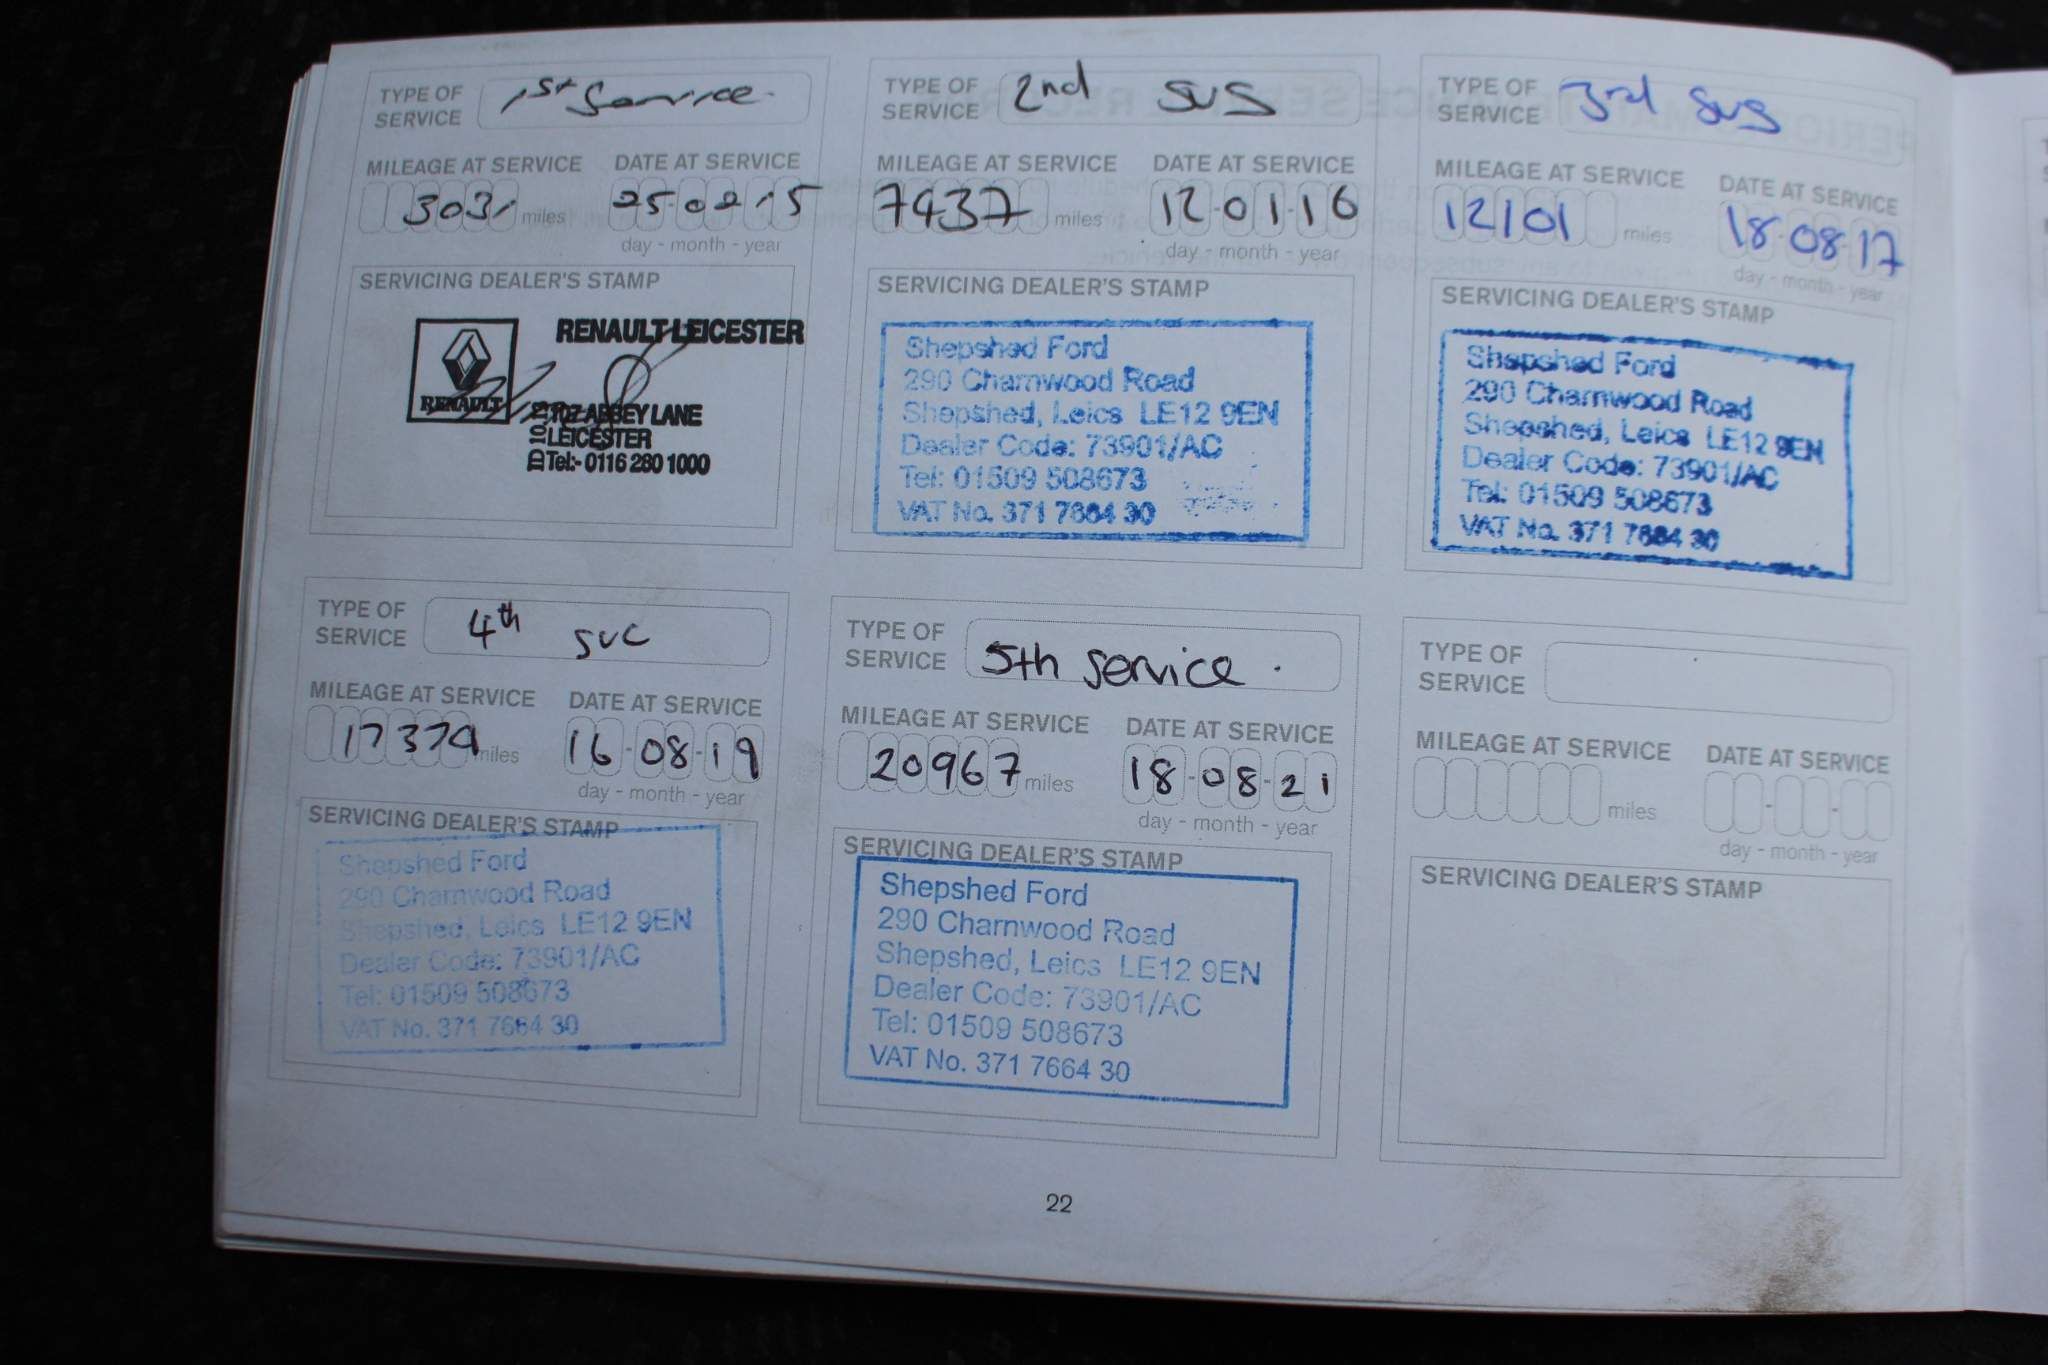 TYPE OF SERVICE 1st Service
MILEAGE AT SERVICE DATE AT SERVICE
3031 miles 25-02-15
day - month - year
SERVICING DEALER'S STAMP
RENAULT LEICESTER
RENAULT
ABBEY LANE
LEICESTER
Tel:- 0116 280 1000
TYPE OF SERVICE 2nd SVS
MILEAGE AT SERVICE DATE AT SERVICE
7437 miles 12-01-16
day - month - year
SERVICING DEALER'S STAMP
Shepshed Ford
290 Charnwood Road
Shepshed, Leics LE12 9EN
Dealer Code: 73901/AC
Tel: 01509 508673
VAT No. 371 7664 30
TYPE OF SERVICE 3rd SVS
MILEAGE AT SERVICE DATE AT SERVICE
12101 miles 18-08-17
day - month - year
SERVICING DEALER'S STAMP
Shepshed Ford
290 Charnwood Road
Shepshed, Leics LE12 9EN
Dealer Code: 73901/AC
Tel: 01509 508673
VAT No. 371 7664 30
TYPE OF SERVICE 4th SVC
MILEAGE AT SERVICE DATE AT SERVICE
17379 miles 16-08-19
day - month - year
SERVICING DEALER'S STAMP
Shepshed Ford
290 Charnwood Road
Shepshed, Leics LE12 9EN
Dealer Code: 73901/AC
Tel: 01509 508673
VAT No. 371 7664 30
TYPE OF SERVICE 5th Service.
MILEAGE AT SERVICE DATE AT SERVICE
20967 miles 18-08-21
day - month - year
SERVICING DEALER'S STAMP
Shepshed Ford
290 Charnwood Road
Shepshed, Leics LE12 9EN
Dealer Code: 73901/AC
Tel: 01509 508673
VAT No. 371 7664 30
TYPE OF SERVICE
MILEAGE AT SERVICE DATE AT SERVICE
miles
day - month - year
SERVICING DEALER'S STAMP
22